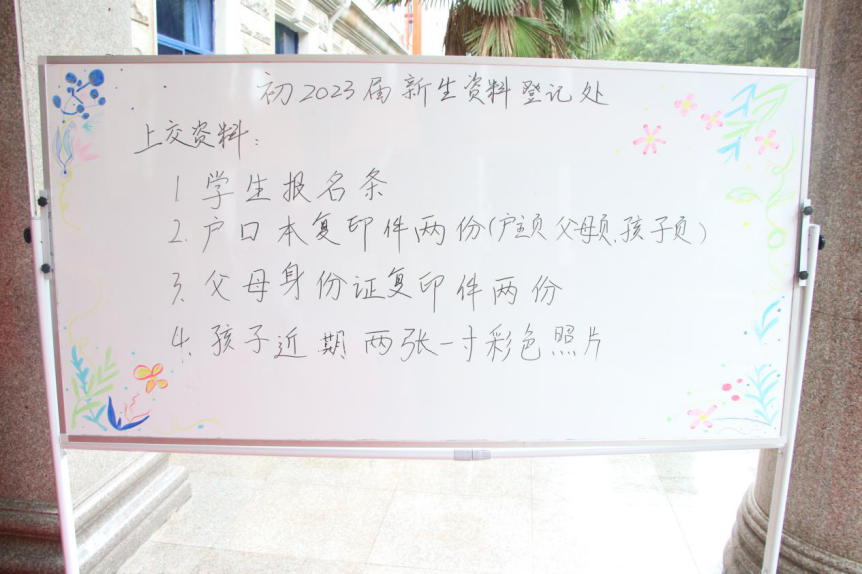 初2023届新生资料登记处
上交资料:
1 学生报名条
2. 户口本复印件两份(户主页 父母页.孩子页)
3、父母身份证复印件两份
4、孩子近期 两张一寸彩色照片